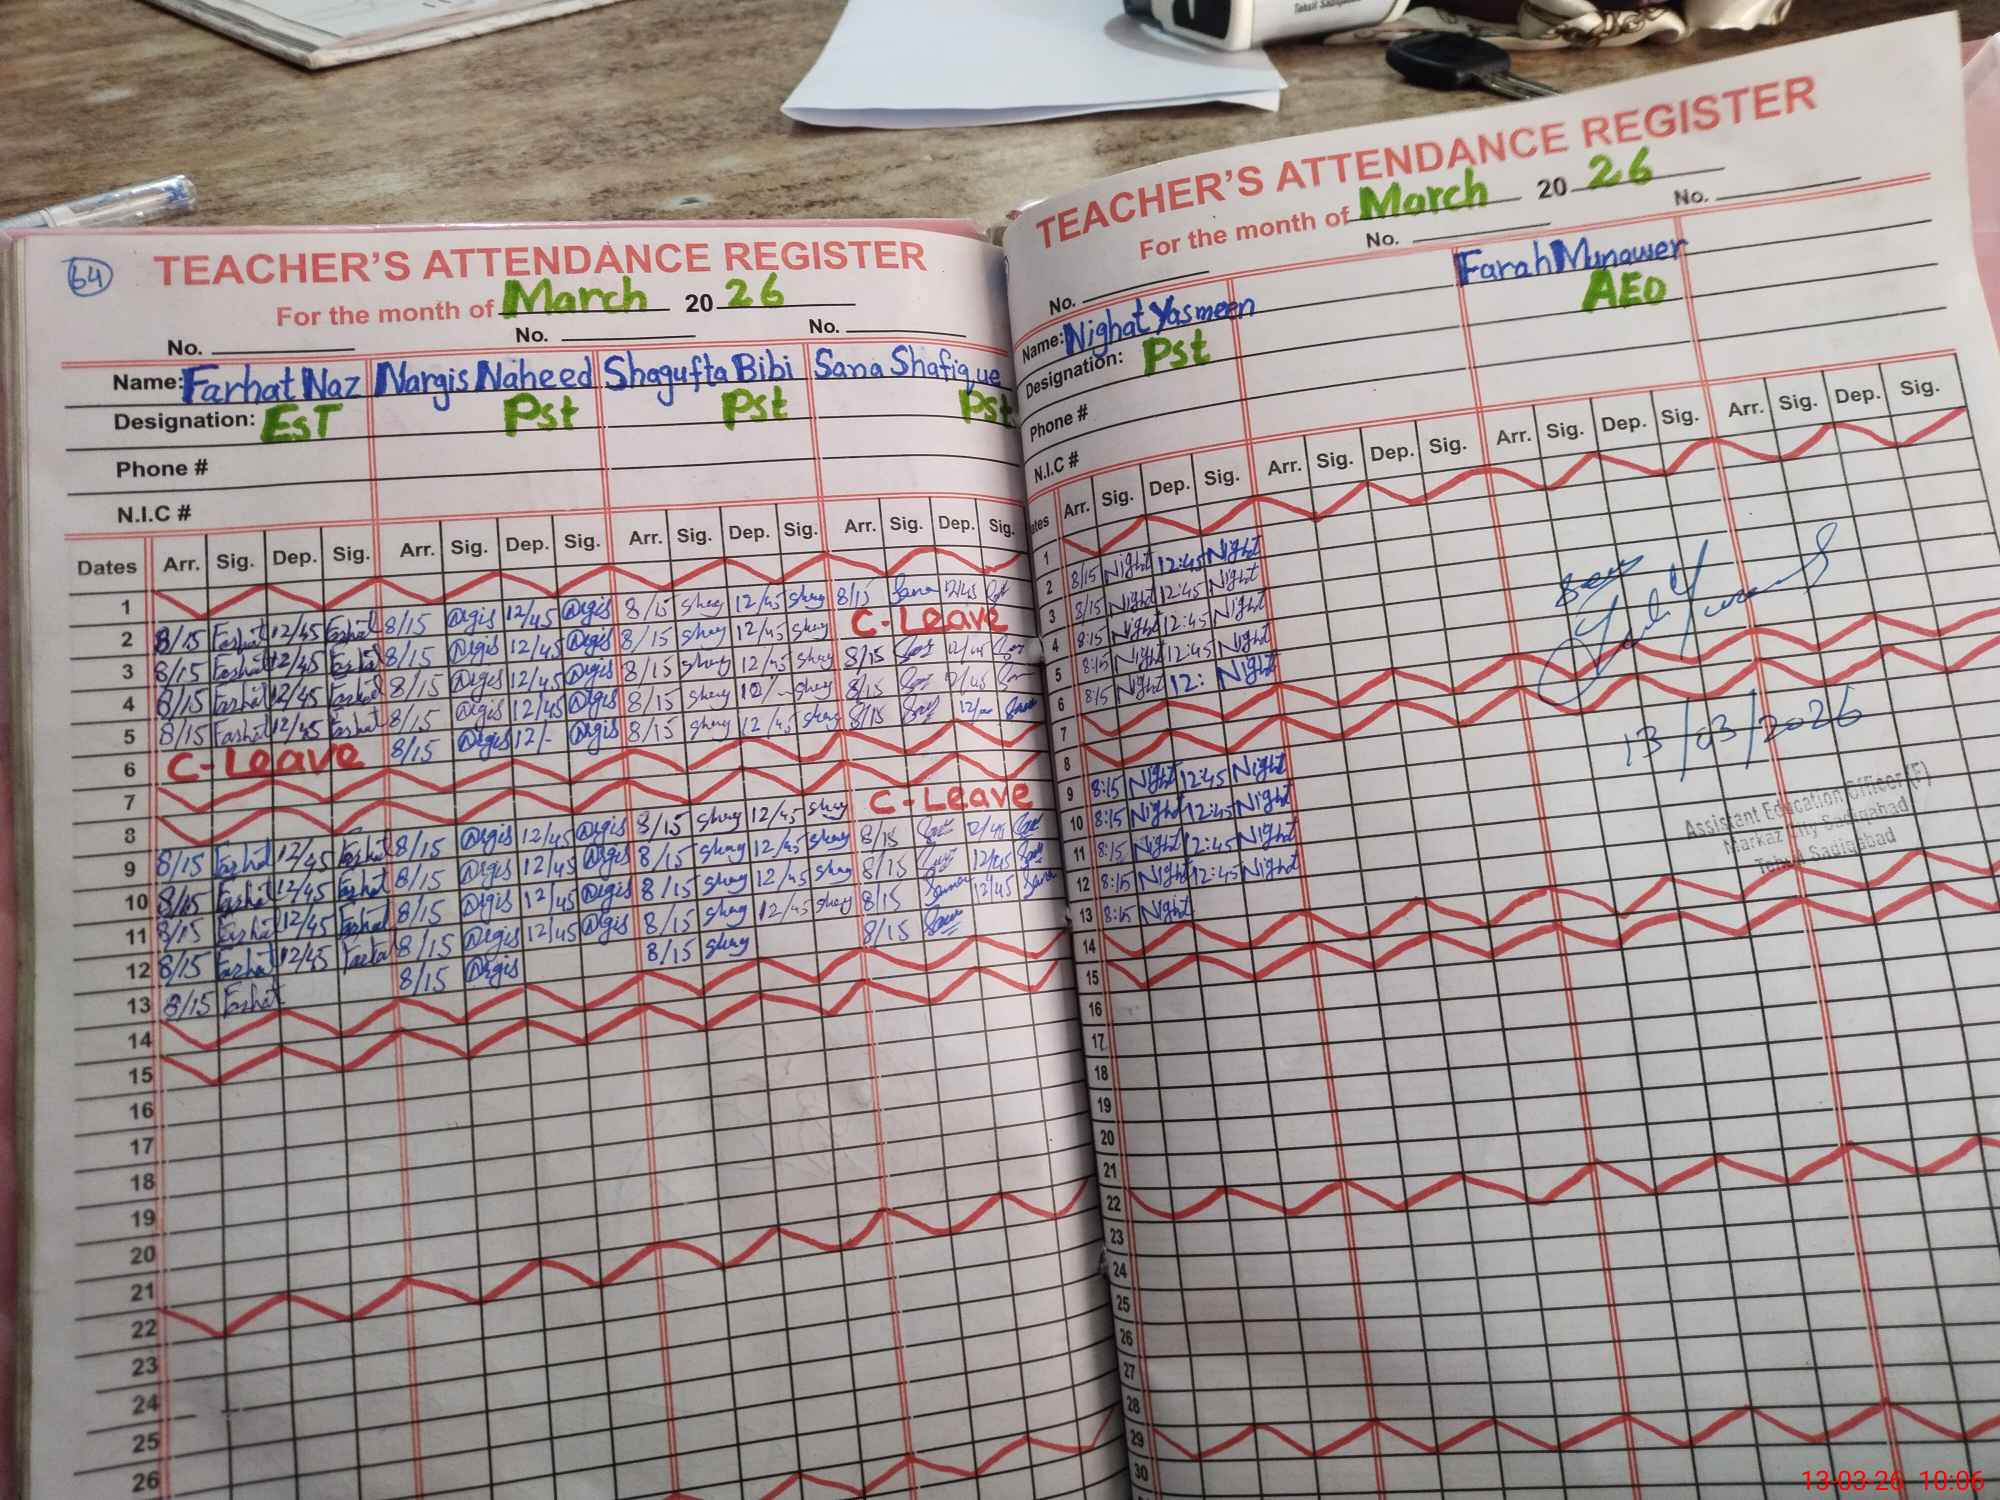 Tehsil Sadiqabad
64
TEACHER'S ATTENDANCE REGISTER
For the month of March 2026
No. No. No.
Name: Farhat Naz Nargis Naheed Shagufta Bibi Sana Shafique
Designation: EsT Pst Pst Pst
Phone #
N.I.C #
Dates Arr. Sig. Dep. Sig. Arr. Sig. Dep. Sig. Arr. Sig. Dep. Sig. Arr. Sig. Dep. Sig.
1
2 8/15 Farhat 12/45 Farhat 8/15 12/45 8/15 Shag 12/45 Shag 8/15 Sana 12/45
3 8/15 Farhat 12/45 Farhat 8/15 12/45 8/15 Shag 12/45 Shag C-Leave
4 8/15 Farhat 12/45 Farhat 8/15 12/45 8/15 Shag 12/45 Shag 8/15 12/45
5 8/15 Farhat 12/45 Farhat 8/15 12/45 8/15 Shag 12/- Shag 8/15 12/45
6 C-Leave 8/15 12/- 8/15 Shag 12/45 Shag 8/15
7
8
9 8/15 Farhat 12/45 Farhat 8/15 12/45 8/15 Shag 12/45 Shag C-Leave
10 8/15 Farhat 12/45 Farhat 8/15 12/45 8/15 Shag 12/45 Shag 8/15 12/45
11 8/15 Farhat 12/45 Farhat 8/15 12/45 8/15 Shag 12/45 Shag 8/15 12/45
12 8/15 Farhat 12/45 8/15 12/45 8/15 Shag 12/45 Shag 8/15 12/45 Sana
13 8/15 Farhat 8/15 8/15 Shag 8/15
14
15
16
17
18
19
20
21
22
23
24
25
26
TEACHER'S ATTENDANCE REGISTER
For the month of March 2026
No. No. No.
Name: Nighat Yasmeen Farah Munawer
Designation: Pst AEO
Phone #
N.I.C #
Arr. Sig. Dep. Sig. Arr. Sig. Dep. Sig. Arr. Sig. Dep. Sig. Arr. Sig. Dep. Sig.
1
2 8/15 Night 12:45 Night
3 8/15 Night 12:45 Night
4 8:15 Night 12:45 Night
5 8:15 Night 12:45 Night
6 8/15 Night 12: Night
7
8
9 8:15 Night 12:45 Night
10 8:15 Night 12:45 Night
11 8:15 Night 12:45 Night
12 8:15 Night 12:45 Night
13 8:15 Night
14
15
16
17
18
19
20
21
22
23
24
25
26
27
28
29
30
13/03/2026
Assistant Education Officer (F)
Markaz City Sadiqabad
Tehsil Sadiqabad
13-03-26 10:06